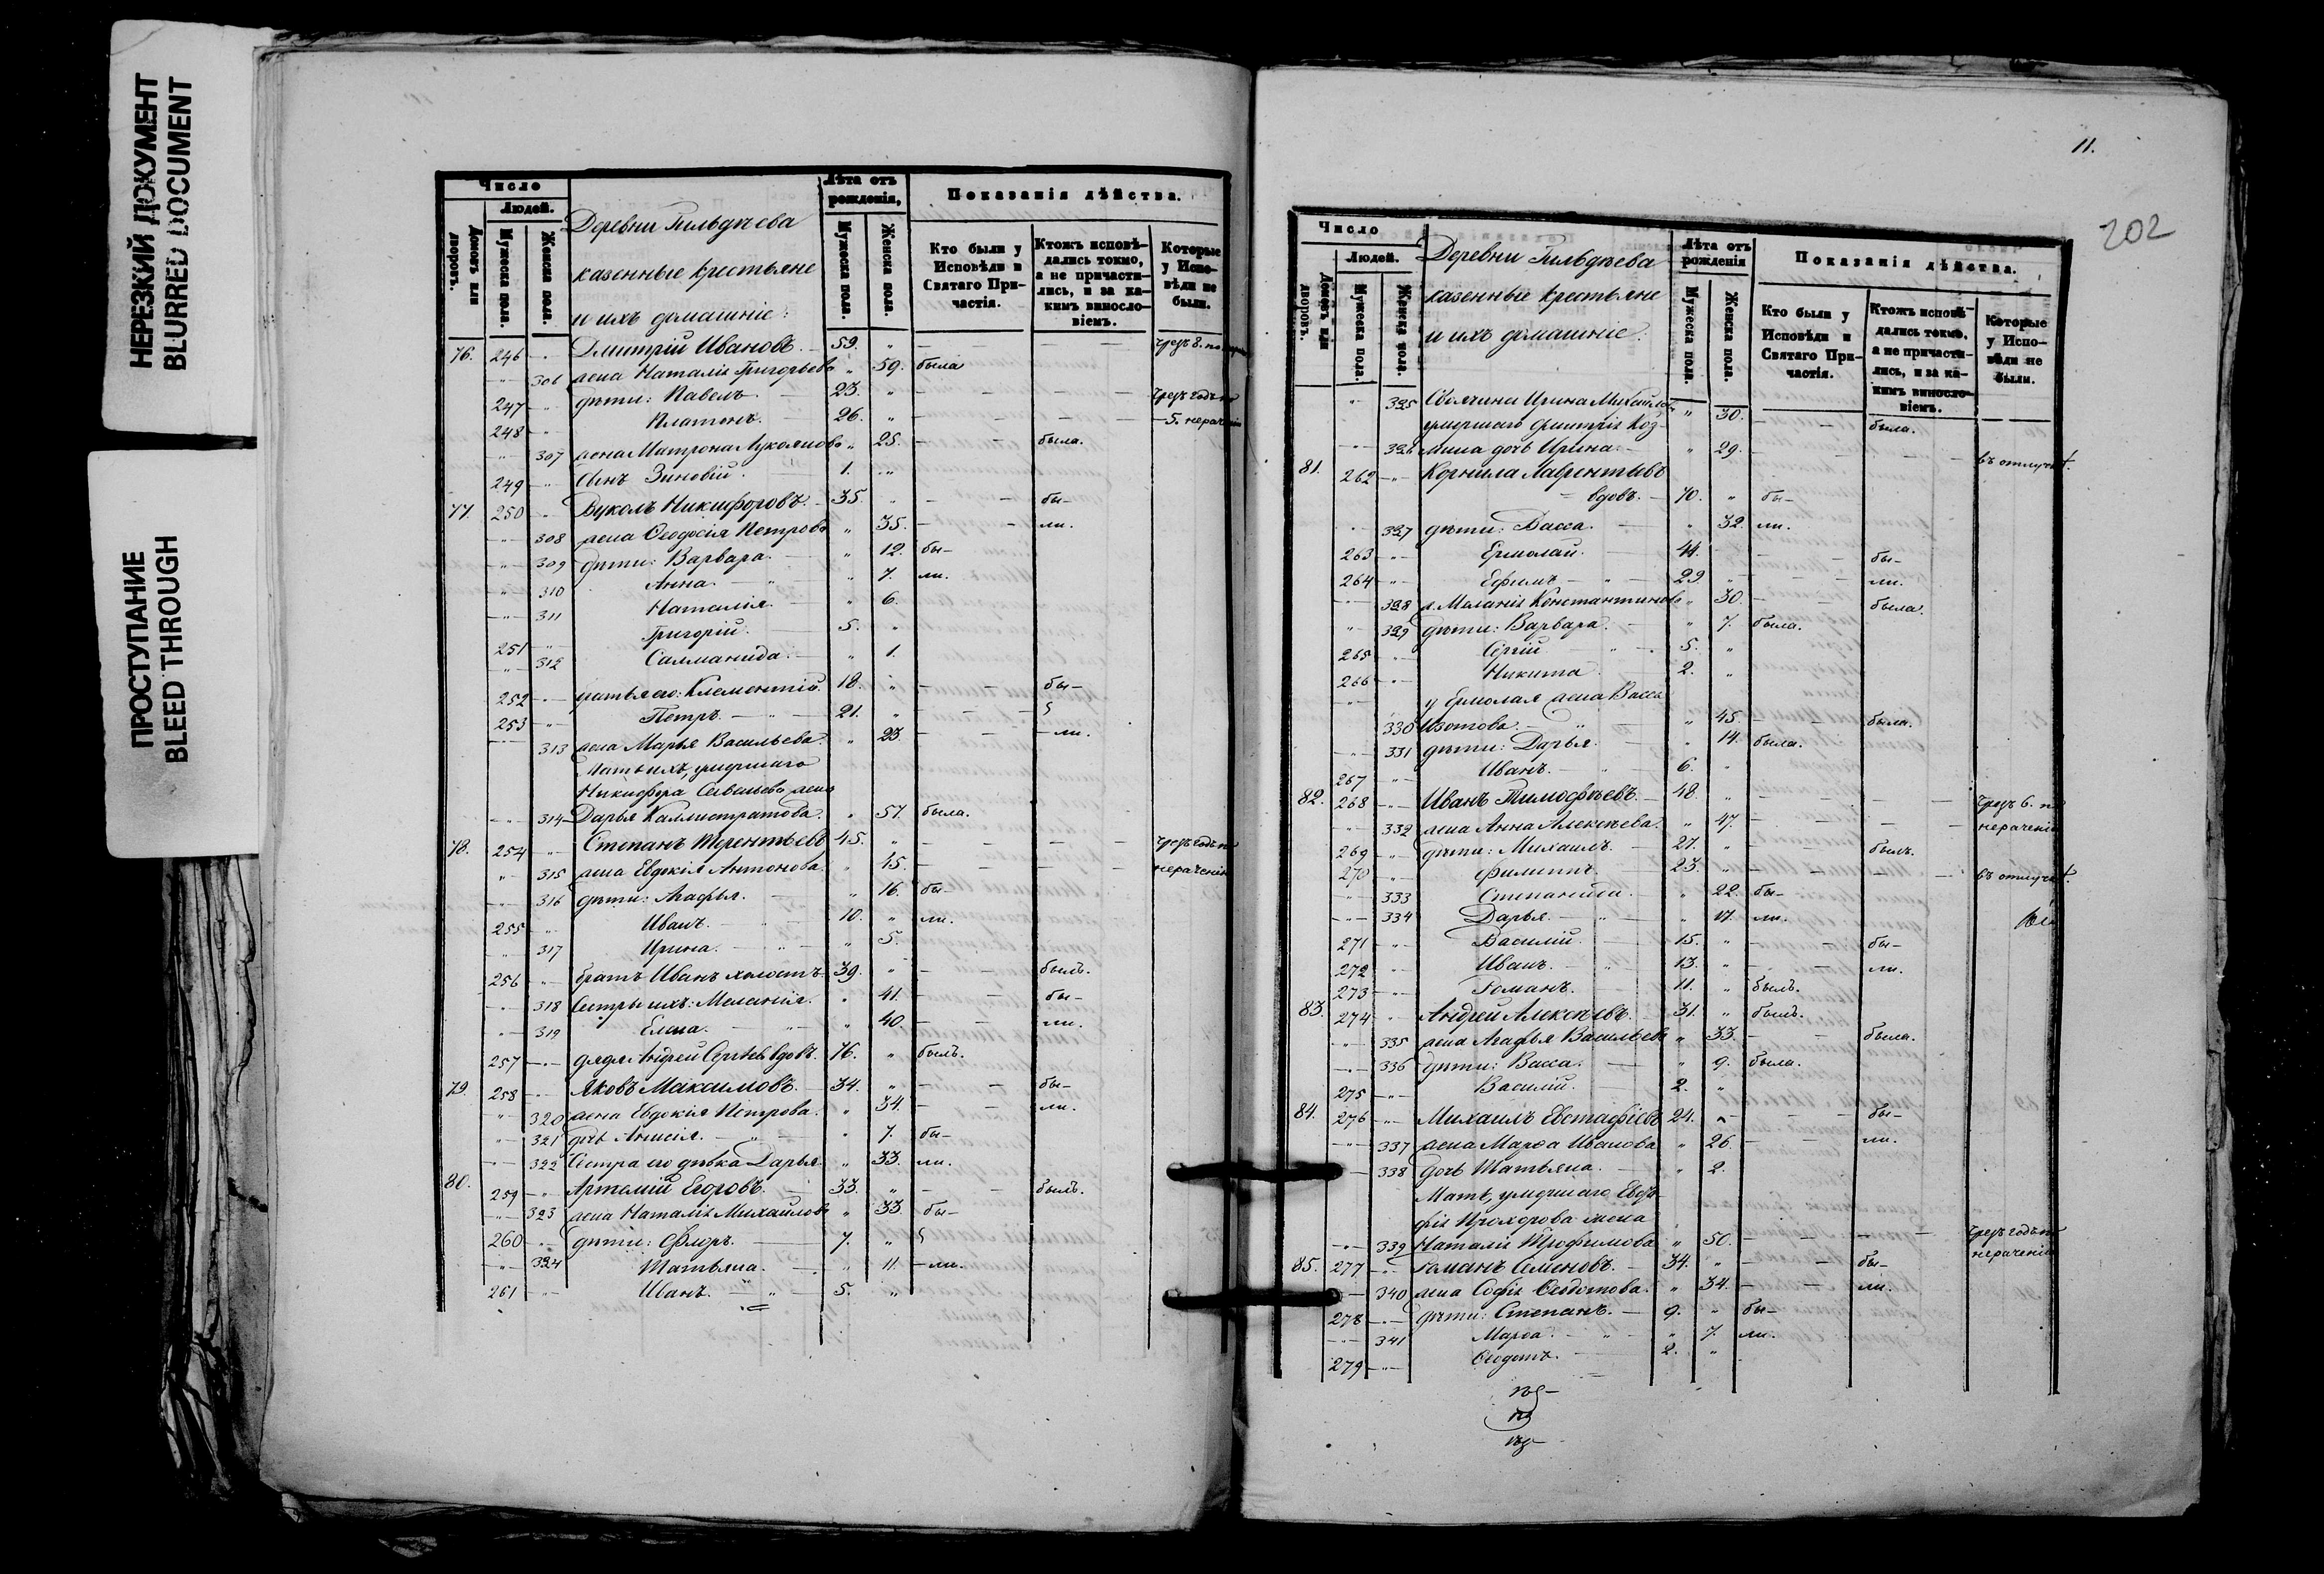 НЕРЕЗКИЙ ДОКУМЕНТ
BLURRED DOCUMENT
ПРОСТУПАНИЕ
BLEED THROUGH
Число
Людей.
Домовъ или дворовъ.
Мужеска пола.
Женска пола.
Деревни Гильдѣева
казенные крестьяне
и ихъ домашніе:
Лѣта отъ рожденія,
Мужеска пола.
Женска пола.
Показанія дѣйства.
Кто были у Исповѣди и Святаго Причастія.
Ктожъ исповѣдались токмо, а не причастились, и за какимъ винословіемъ.
Которые у Исповѣди не были.
76. 246 Дмитрій Ивановъ. 59. чрезъ 8. по
306 жена Наталія Григорьева 59. была
247 дѣти: Павелъ. 23. чрезъ годъ по
248 Платонъ. 26. 5. нераченію
307 жена Матрона Лукоянова 25. была.
249 сынъ Зиновій. 1.
77. 250 Вуколъ Никифоровъ. 35. бы-
308 жена Ѳеодосія Петрова 35. ли.
309 дѣти: Варвара. 12. бы-
310 Анна. 7. ли.
311 Наталія. 6.
251 Григорій. 5.
312 Саломанида. 1.
252 братья его: Климентій. 18. бы-
253 Петръ. 21.
313 жена Марья Васильева. 23. ли.
Мать ихъ, умершаго
Никифора Савельева жена
314 Дарья Каллистратова. 57. была.
78. 254 Степанъ Терентьевъ 45. чрезъ годъ по
315 жена Евдокія Антонова. 45. нераченію
316 дѣти: Агафья. 16. бы-
255 Иванъ. 10. ли.
317 Ирина. 5.
256 братъ Иванъ холостъ 39. былъ.
318 Сестры ихъ: Меланія. 41. бы-
319 Елена. 40. ли.
257 дядя Андрей Сергѣевъ вдовъ. 76. былъ.
79. 258 Яковъ Максимовъ. 34. бы-
320 жена Евдокія Петрова. 34. ли.
321 дочь Анисія. 7. бы-
322 Сестра его дѣвка Дарья 33. ли.
80. 259 Артемій Егоровъ. 33. былъ.
323 жена Наталія Михайлова 33. бы-
260 дѣти: Флоръ. 7.
324 Татьяна. 11. ли.
261 Иванъ. 5.
11.
202
Число
Людей.
Домовъ или дворовъ.
Мужеска пола.
Женска пола.
Деревни Гильдѣева
казенные крестьяне
и ихъ домашніе.
Лѣта отъ рожденія
Мужеска пола.
Женска пола.
Показанія дѣйства.
Кто были у Исповѣди и Святаго Причастія.
Ктожъ исповѣдались токмо, а не причастились, и за какимъ винословіемъ.
Которые у Исповѣди не были.
325 Ирина Михайлова 30. была.
умершаго Дмитрія Коз-
326 мина дочь Ирина. 29. въ отлучкѣ.
81. 262 Корнила Лаврентьевъ
вдовъ. 70. бы-
327 дѣти: Васса. 32. ли.
263 Ермолай. 44. бы-
264 Ефимъ 29. ли.
328 ж. Меланія Константинова 30. была.
329 дѣти: Варвара. 7. была.
265 Сергій 5.
266 Никита 2.
у Ермолая жена Васса
330 Изотова. 45. была.
331 дѣти: Дарья. 14. была.
267 Иванъ. 6.
82. 268 Иванъ Тимофѣевъ. 48. чрезъ 6. по
332 жена Анна Алексѣева. 47. нераченію
269 дѣти: Михаилъ. 27. былъ.
270 Филиппъ. 23. въ отлучкѣ.
333 Степанида. 22. бы-
334 Дарья. 17. ли.
271 Василій. 15. бы-
272 Иванъ. 13. ли.
273 Романъ. 11. былъ.
83. 274 Андрей Алексѣевъ 31. былъ.
335 жена Агафья Васильева 33. была.
336 дѣти: Васса. 9. была.
275 Василій. 2.
84. 276 Михаилъ Евстафіевъ 24. бы-
337 жена Марѳа Иванова 26. ли.
338 дочь Татьяна. 2.
Мать, умершаго Евста-
фія Прохорова жена
339 Наталія Трофимова 50. чрезъ годъ по нераченію
85. 277 Романъ Семеновъ. 34. бы-
340 жена Софія Ѳедотова. 34. ли.
278 дѣти: Степанъ. 9. бы-
341 Марѳа. 7. ли.
279 Ѳеодотъ. 2.